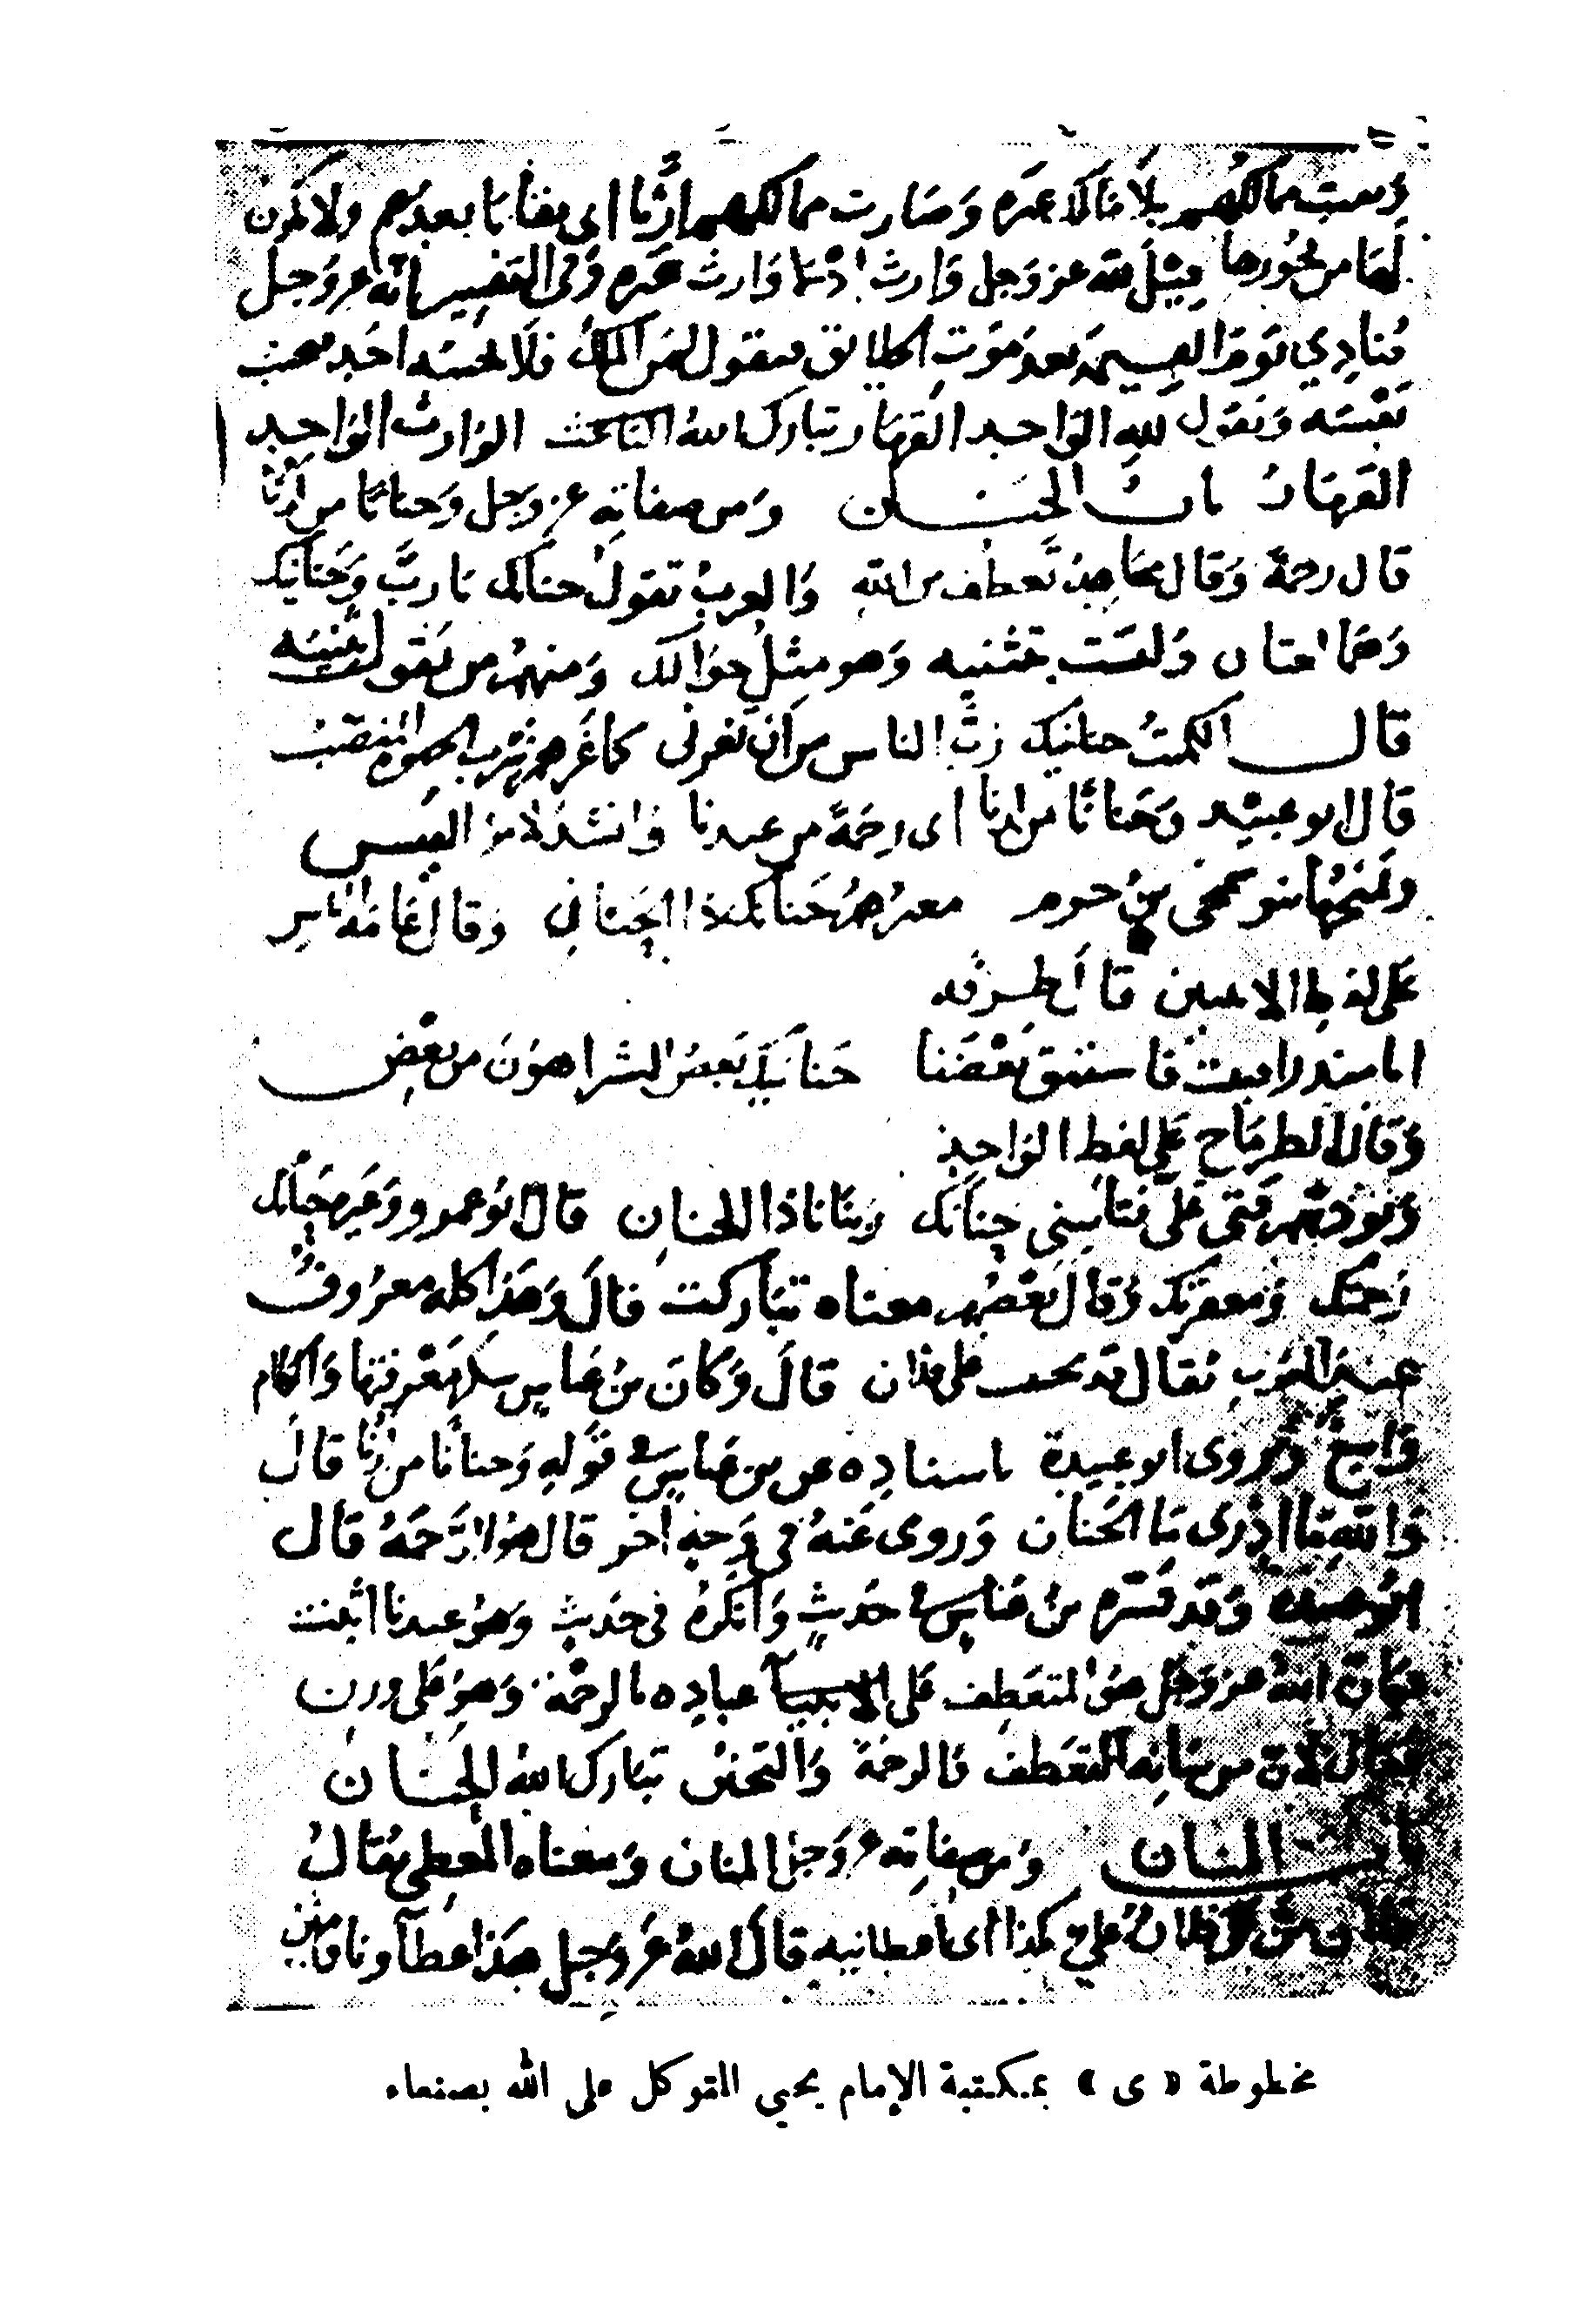 وصارت ممالكهم إرثا اى بقاياها بعدهم ولا يكون
لها من يحوزها فقيل لله عز وجل وارث وفى التفسير انه عز وجل
ينادي يوم القيمة بعد موت الخلائق فيقول لمن الملك فلا يجيبه احد فيجيب
نفسه ويقول لله الواحد القهار تبارك الله الباعث الوارث الواحد
القهار باب الحنان ومن صفاته عز وجل وحنانا من لدنا
قال رحمة وقال مجاهد تعطف من الله والعرب تقول حنانك يا رب وحنانيك
وهما لغتان وليست بتثنية وهو مثل حواليك ومنهم من يقول تثنيه
قال الكميت حنانيك رب الناس من ان تغرنى كما غرهم شرب الحيوة المنضب
قال ابو عبيد وحنانا من لدنا اى رحمة من عندنا وانشد لامرء القيس
ويمنحها بنو شمجى بن جرم معيزهم حنانك ذا الحنان وقال غامة الناس
على لفظ الاثنين قال طرفه
ابا منذر افنيت فاستبق بعضنا حنانيك بعض الشر اهون من بعض
وقال الطرماح على لفظ الواحد
حنانك ربنا ياذا الحنان قال ابو عمرو وغيره حنانك
رحمتك ومغفرتك وقال بعضهم معناه تباركت قال وهذا كله معروف
عند العرب يقال قد تحنن على فلان قال وكان بن عباس معرفتها والكلام
واسع وروى ابو عبيدة باسناده عن بن عباس فى قوله وحنانا من لدنا قال
والله ما ادرى ما الحنان وروى عنه فى وجه اخر قال هو الرحمة قال
ابو عبيدة وقد فسره بن عباس فى حديث وانكره فى حديث وهو عندنا اثبت
فكان الله عز وجل هو المتعطف على عباده بالرحمة وهو على وزن
فعال لان من شانه التعطف بالرحمة والتحنن تبارك الله الحنان
باب المنان ومن صفاته عز وجل المنان ومعناه المعطى يقال
فلان على بكذا اى اعطانيه قال الله عز وجل هذا عطآونا فامنن
مخطوطة « ى » بمكتبة الإمام يحيى المتوكل على الله بصنعاء